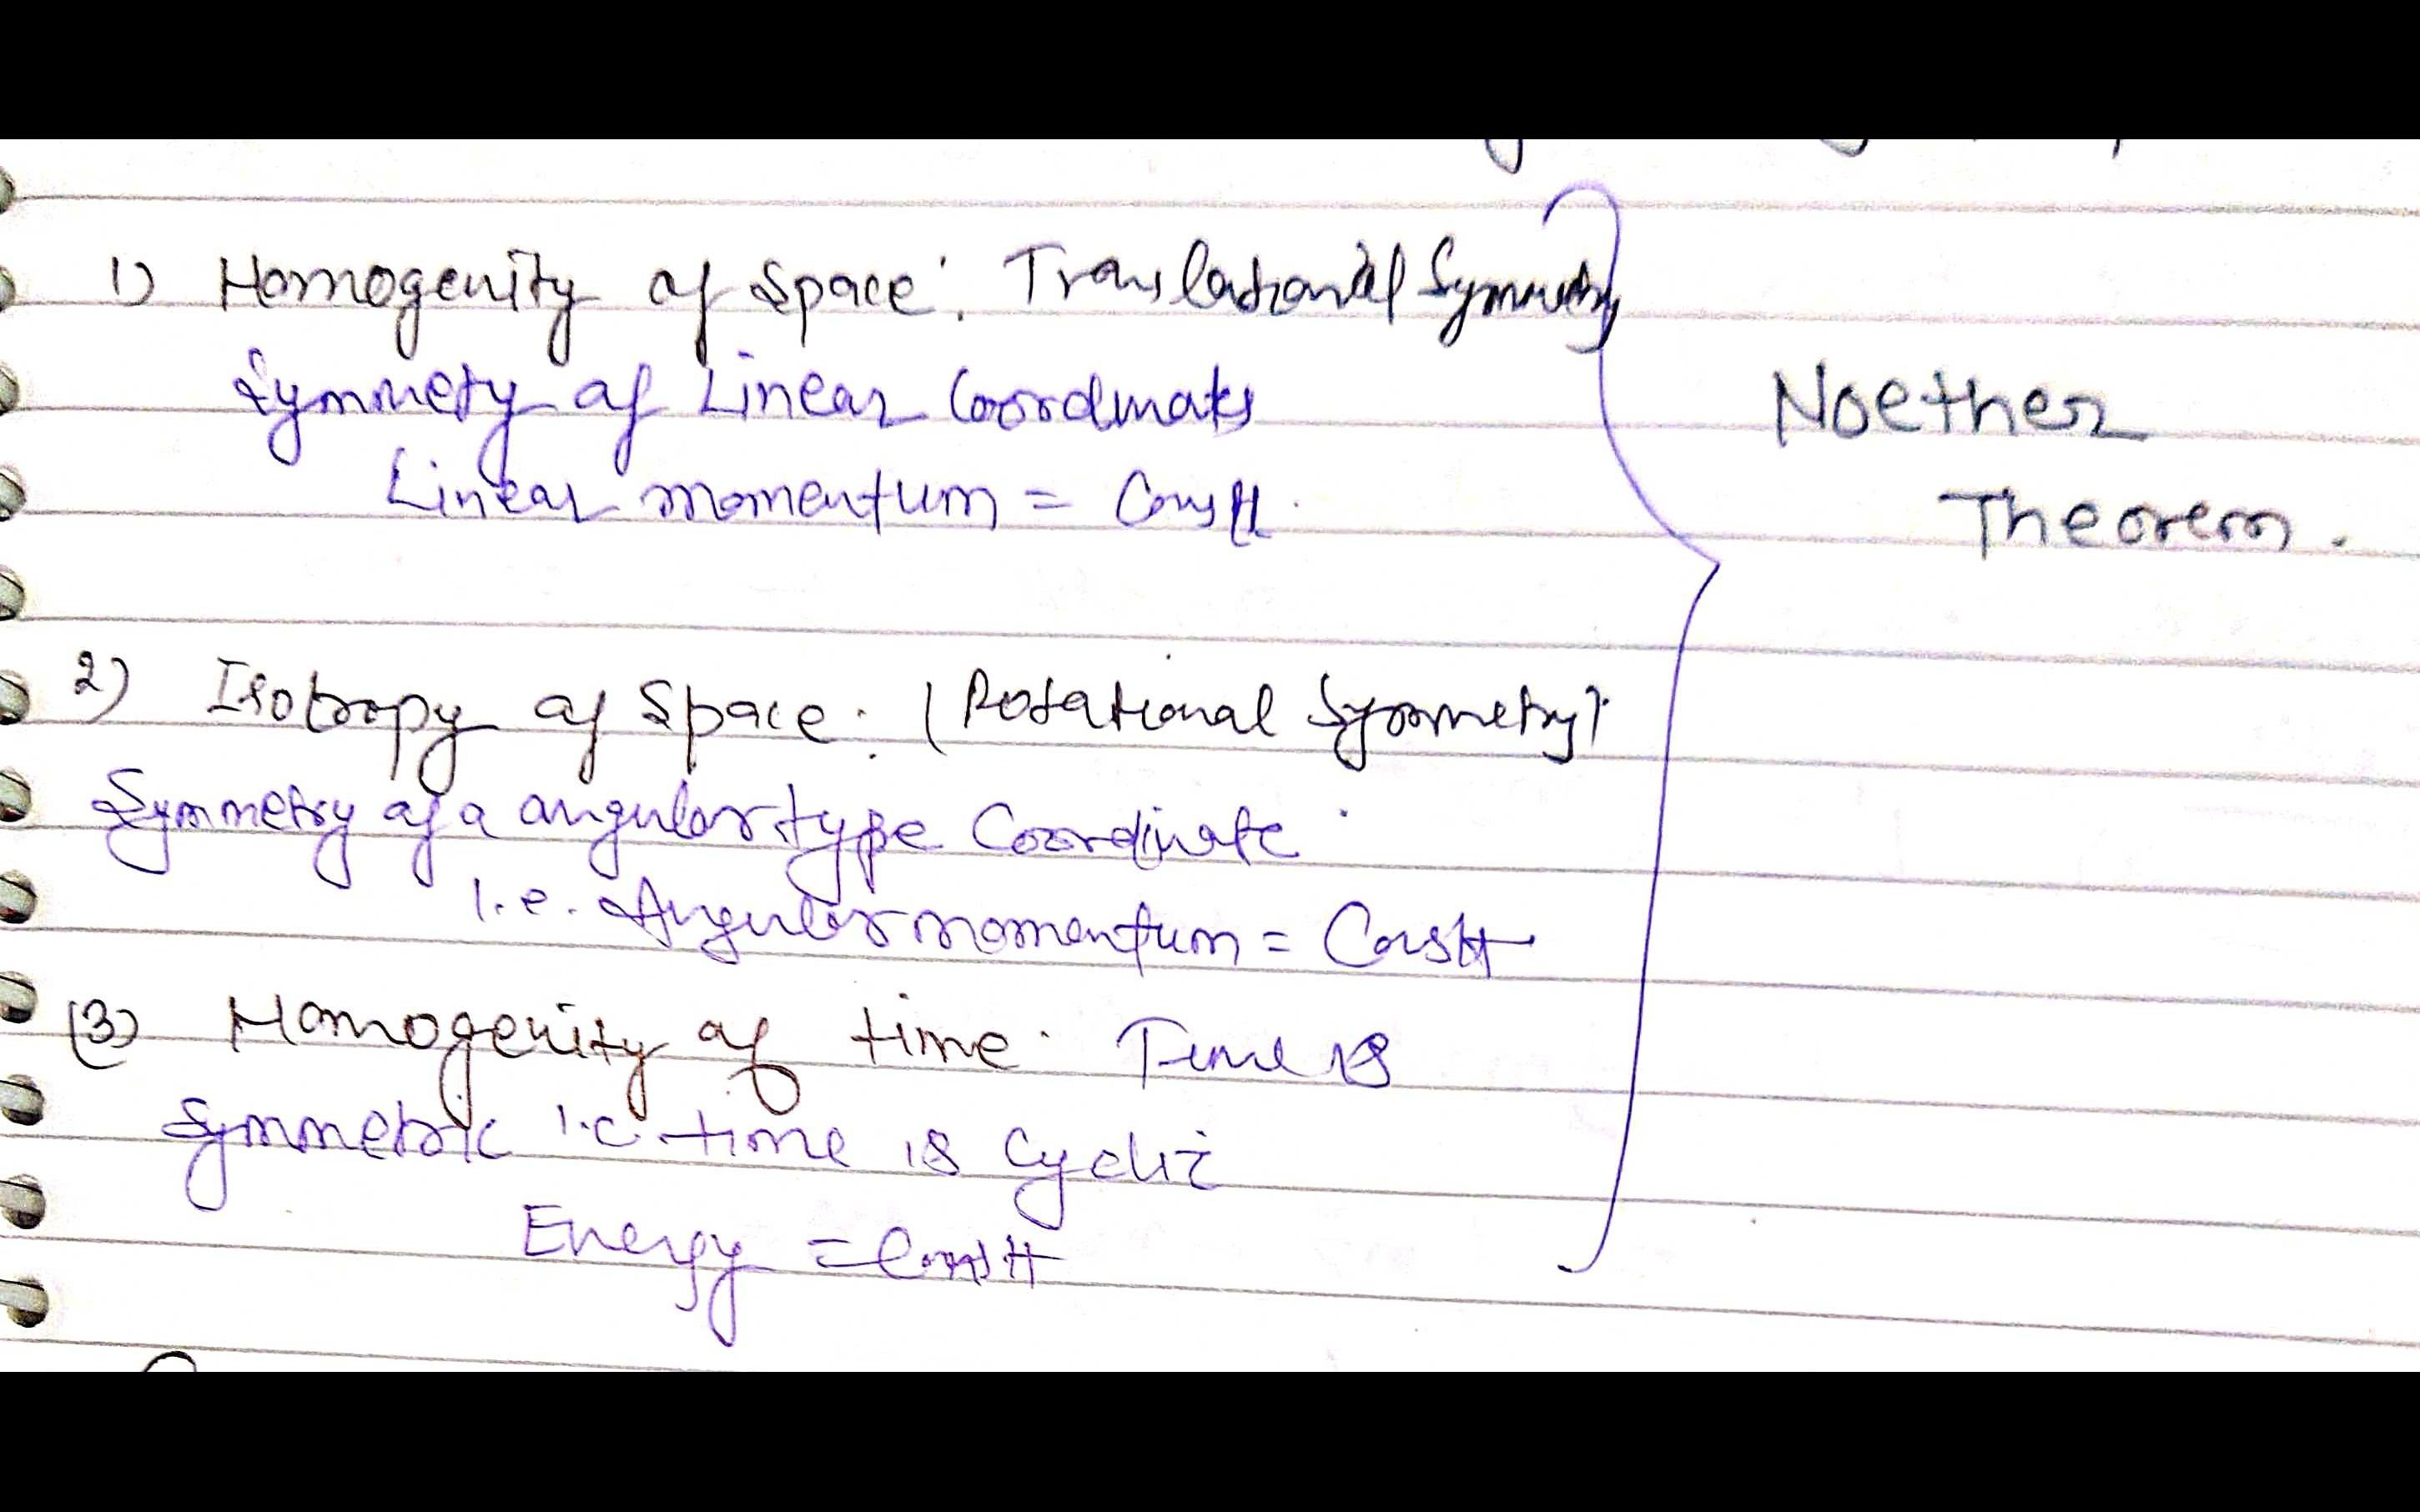 1) Homogenity of Space: Translational Symmetry
Symmetry of Linear Coordinates
Linear momentum = Constt.
Noether
Theorem.
2) Isotropy of Space: (Rotational Symmetry):
Symmetry of a angular type Coordinate
i.e. Angular momentum = Constt
(3) Homogenity of time. Time is
Symmetric i.e. time is Cyclic
Energy = Constt